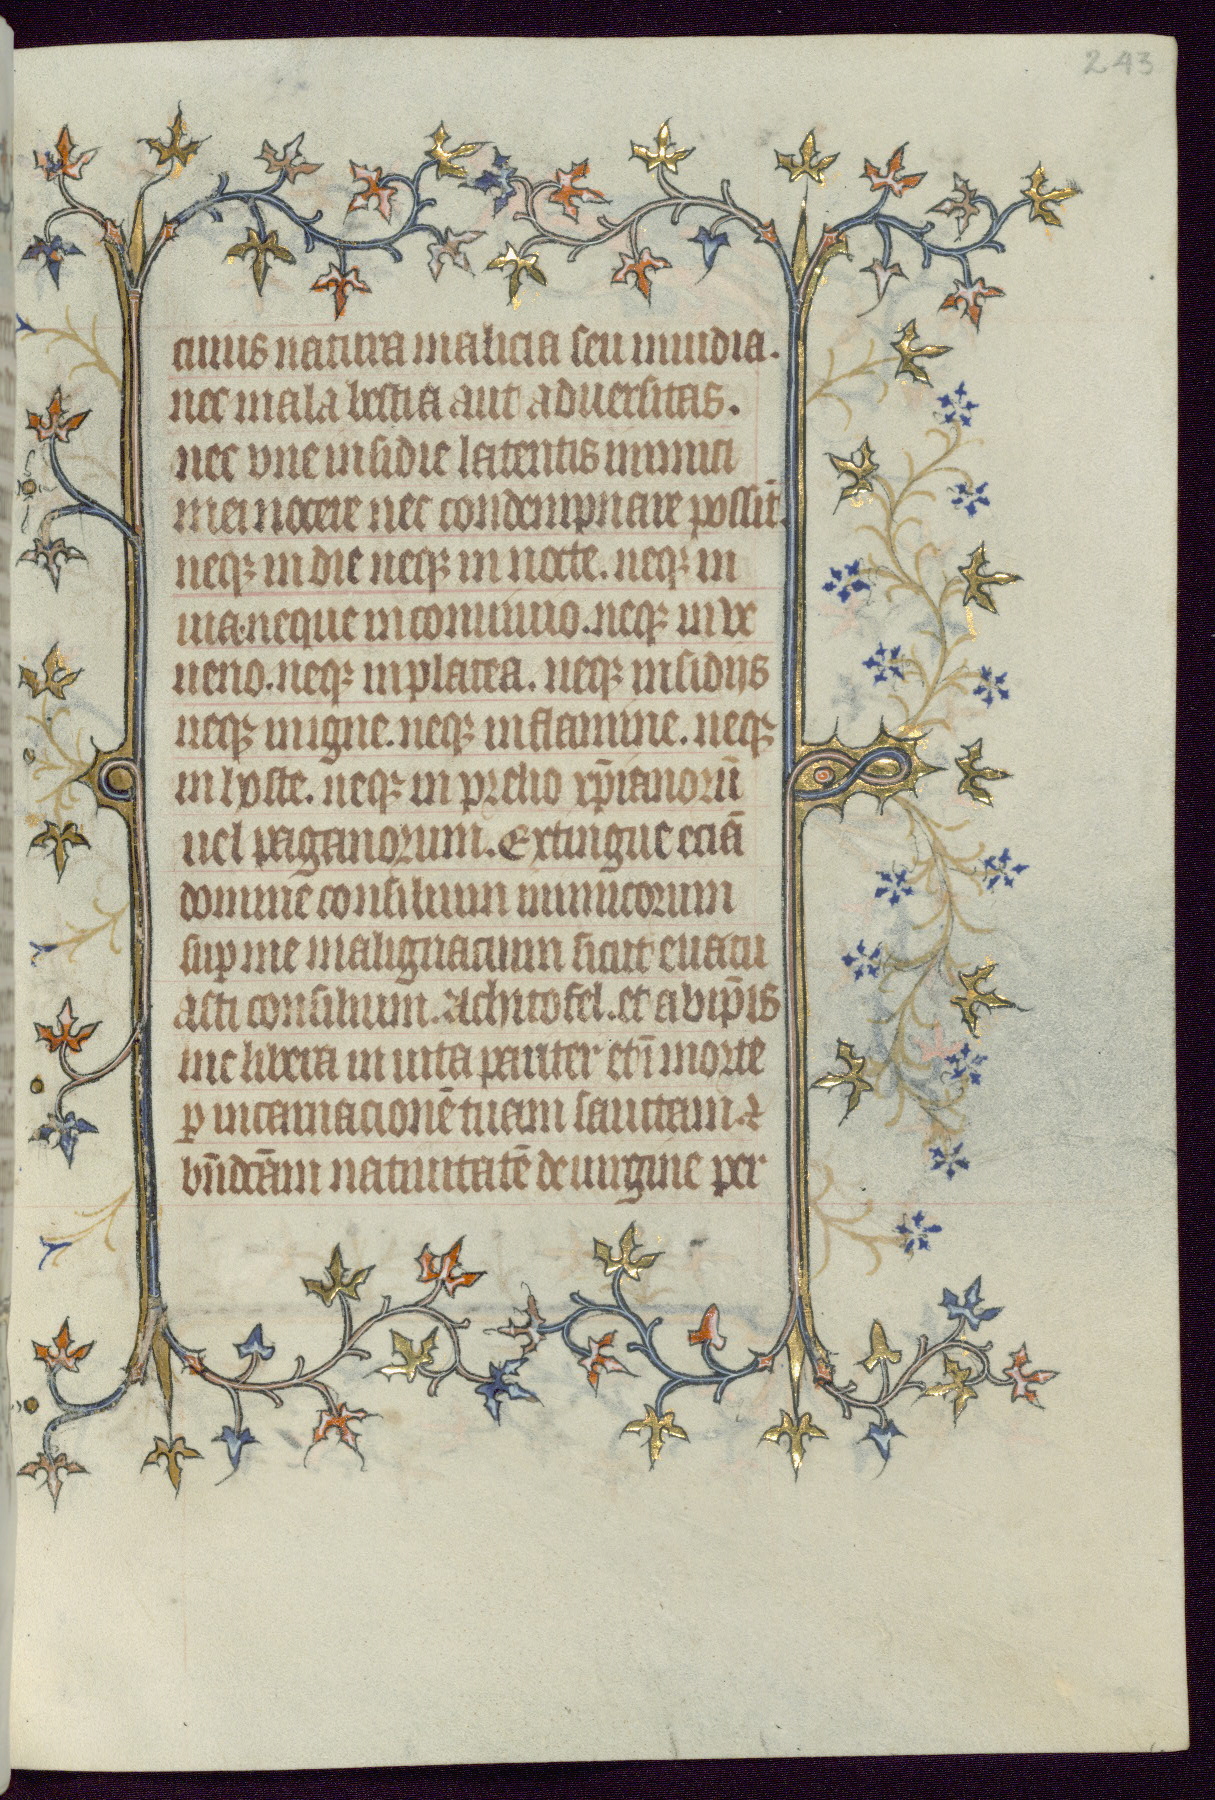 243
cuius natura malicia seu inuidia.
nec mala bestia aut aduersitas.
nec vne insidie latentis inimici
mei nocere nec condempnare possīt.
neqꝫ in die neqꝫ in nocte. neqꝫ in
uia. neque in conuiuio. neqꝫ in ve
neno. neqꝫ in platea. neqꝫ insidijs
neqꝫ in igne. neqꝫ in flamine. neqꝫ
in hoste. neqꝫ in prelio xp̄ianorū
uel paganorum. Extingue eciā
domine consilium inimicorum
suꝑ me malignacium sicut euacu
asti consilium. Achitofel. et ab ip̄is
me libera in uita pariter et ī morte
ꝑ incarnacionē tuam sanctam. ⁊
bn̄dcām natiuitatē de uirgine per